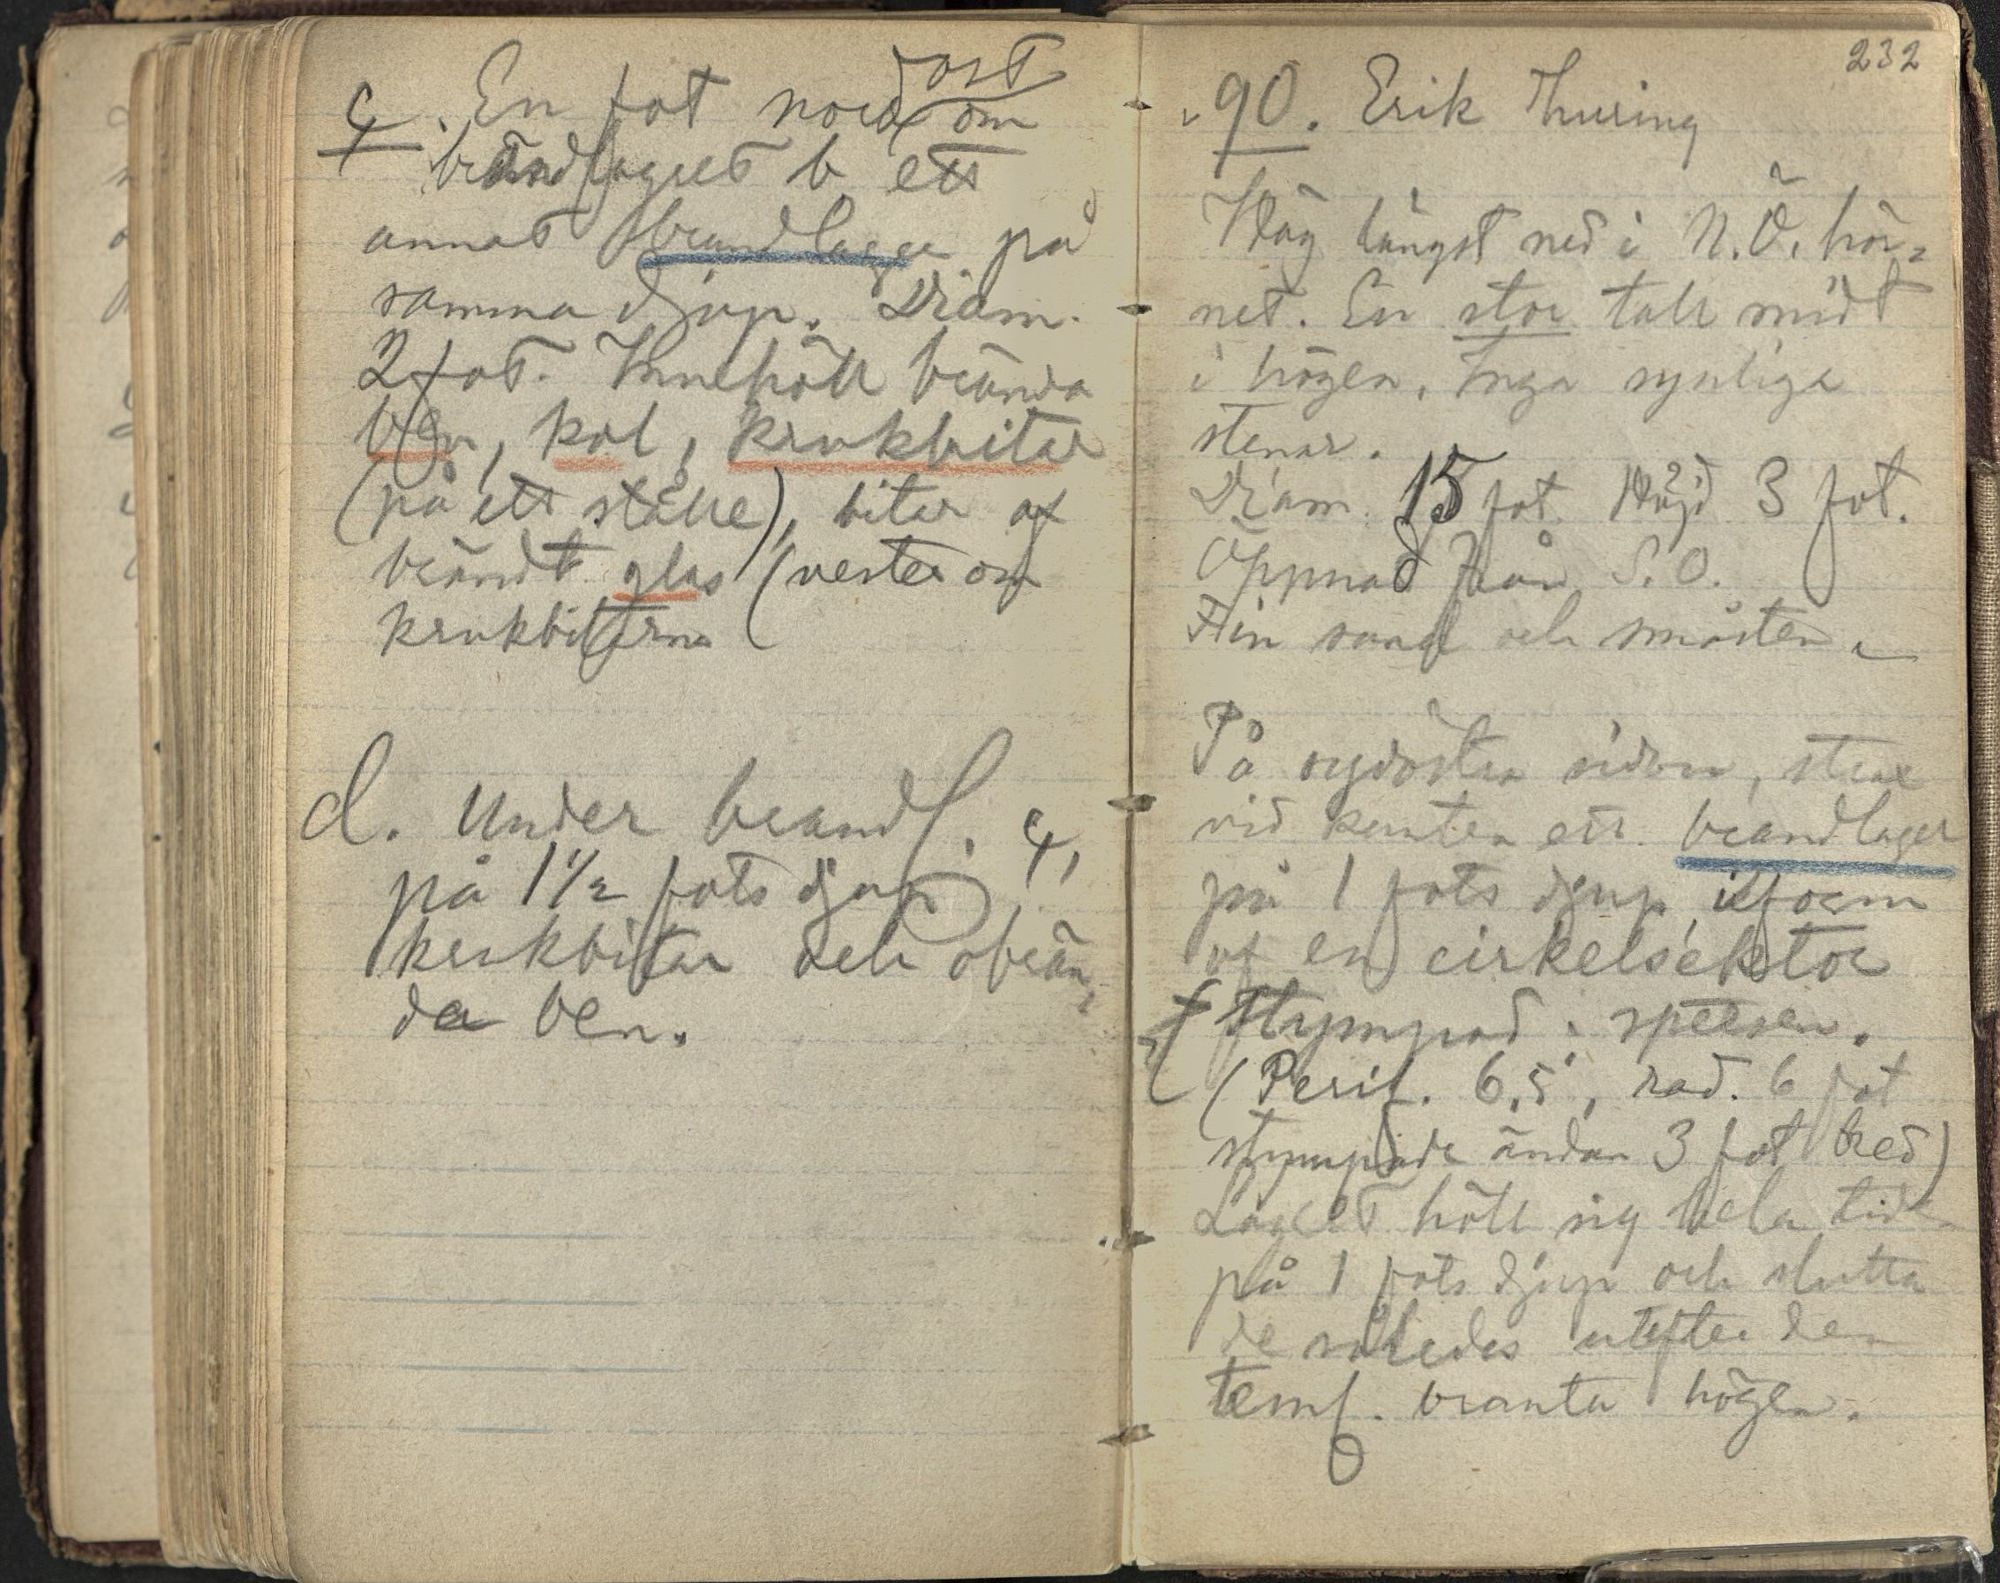 c. En fot nord ost om
brandlagret b ett
annat brandlager på
samma djup. Diam.
2 fot. Innehöll brända
ben, kol, krukbitar
(på ett ställe), bitar af
brändt glas (vester om
krukbitarna
d. Under brandl. c,
på 1 1/2 fots djup
krukbitar och obrän-
da ben.
232
90. Erik Thuring
Hög längst ned i N.Ö. hör-
net. En stor tall midt
i högen. Inga synliga
stenar.
Diam. 15 fot. Höjd 3 fot.
Öppnad från S.O.
Fin sand och småsten.
På sydöstra sidan, strax
vid kanten ett brandlager
på 1 fots djup, i form
af en cirkelsektor
stympad i spetsen.
(Perif. 6,5', rad. 6 fot
stympade ändan 3 fot bred)
Lagret höll sig hela tiden
på 1 fots djup och slutta
de således utefter den
teml. branta högen.